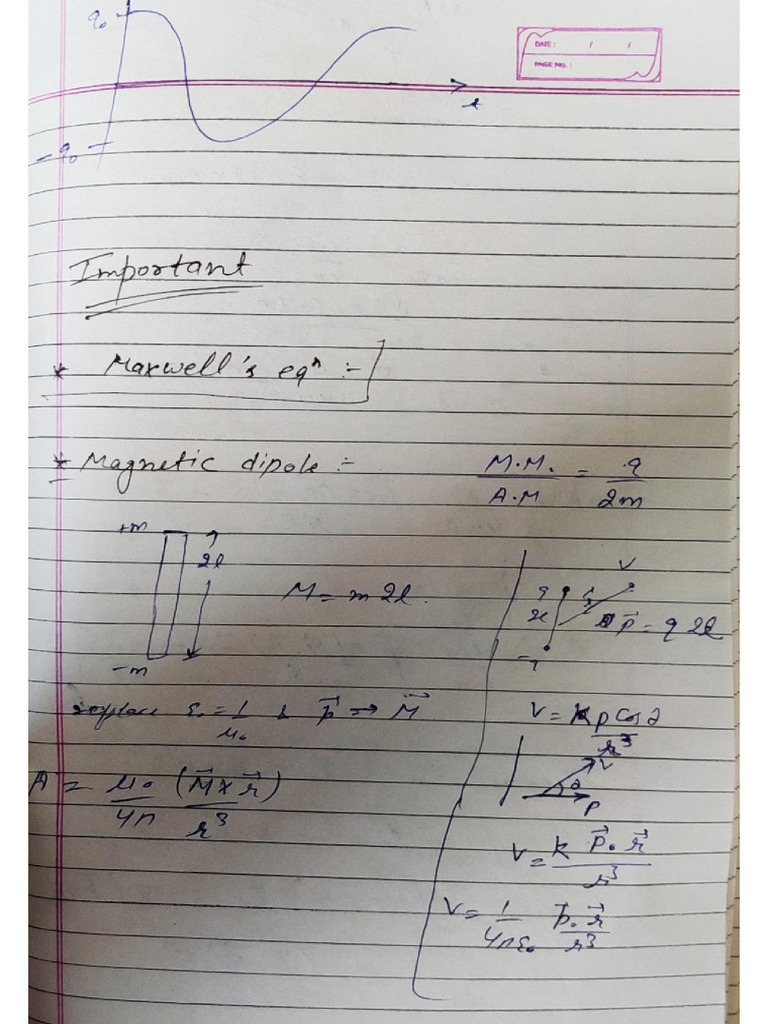 q₀
DATE : / /
PAGE NO. :
t
-q₀
Important
* Maxwell's eqⁿ :-
* Magnetic dipole :-
M.M. / A.M = q / 2m
+m
2l
M = m 2l.
-m
q
2l
r
V
p⃗ = q 2l
-q
replace ε₀ = 1/μ₀ & p⃗ → M⃗
V = k p Cos θ / r³
A = μ₀/4π (M⃗ × r⃗)/r³
r
θ
p
V = k p⃗ . r⃗ / r³
V = 1/4πε₀ p⃗ . r⃗ / r³